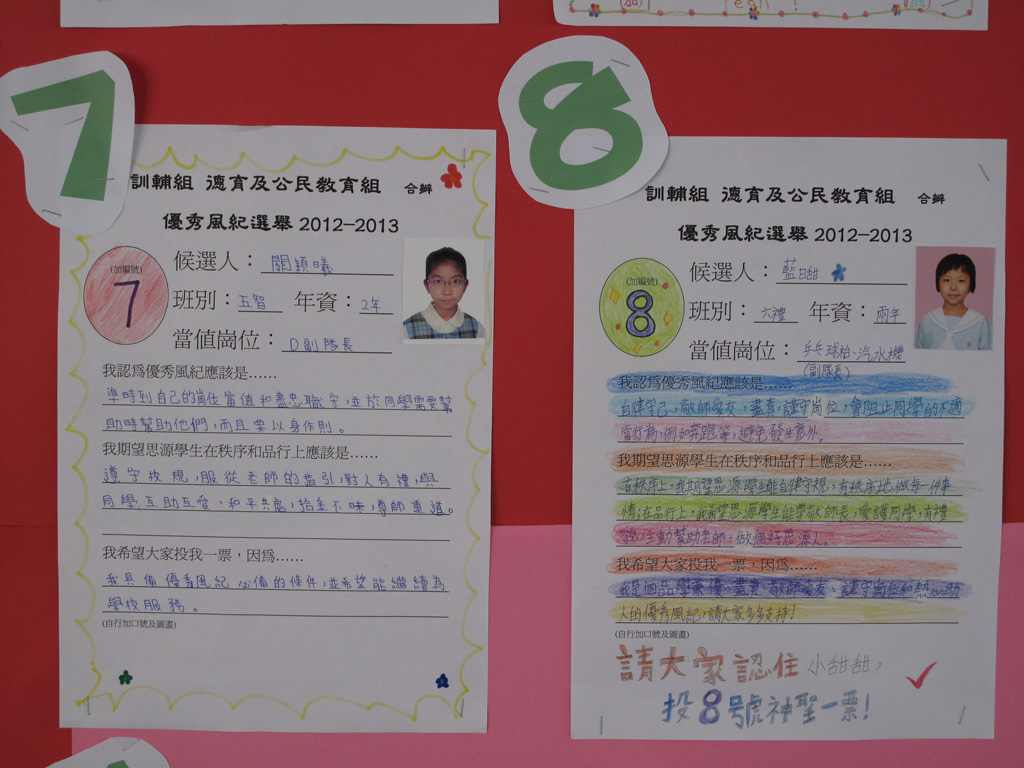 7
訓輔組 德育及公民教育組 合辦
優秀風紀選舉 2012-2013
(加編號)
7
候選人：關穎曦
班別：五智 年資：2年
當值崗位：D副隊長
我認為優秀風紀應該是......
準時到自己的崗位當值和盡忠職守，並於同學需要幫
助時幫助他們，而且要以身作則。
我期望思源學生在秩序和品行上應該是......
遵守校規，服從老師的指引，對人有禮，與
同學互助互愛、和平共處，拾金不昧，尊師重道。
我希望大家投我一票，因為......
我具備優秀風紀必備的條件，並希望能繼續為
學校服務。
(自行加口號及圖畫)
8
訓輔組 德育及公民教育組 合辦
優秀風紀選舉 2012-2013
(加編號)
8
候選人：藍日甜
班別：六禮 年資：兩年
當值崗位：乒乓球枱、汽水機
(副隊長)
我認為優秀風紀應該是......
自律守己，敬師愛友，盡責，謹守崗位，會阻止同學的不適
當行為，例如奔跑等，避免發生意外。
我期望思源學生在秩序和品行上應該是......
在秩序上，我期望思源學生能自律守規，有秩序地做每一件事
情；在品行上，我希望思源學生能尊敬師長，愛護同學，有禮
貌，主動幫助老師，做個好思源人。
我希望大家投我一票，因為......
我是個品學兼優、盡責、敬師愛友、謹守崗位和熱心助
人的優秀風紀，請大家多多支持！
(自行加口號及圖畫)
請大家認住小甜甜，
投8號神聖一票！